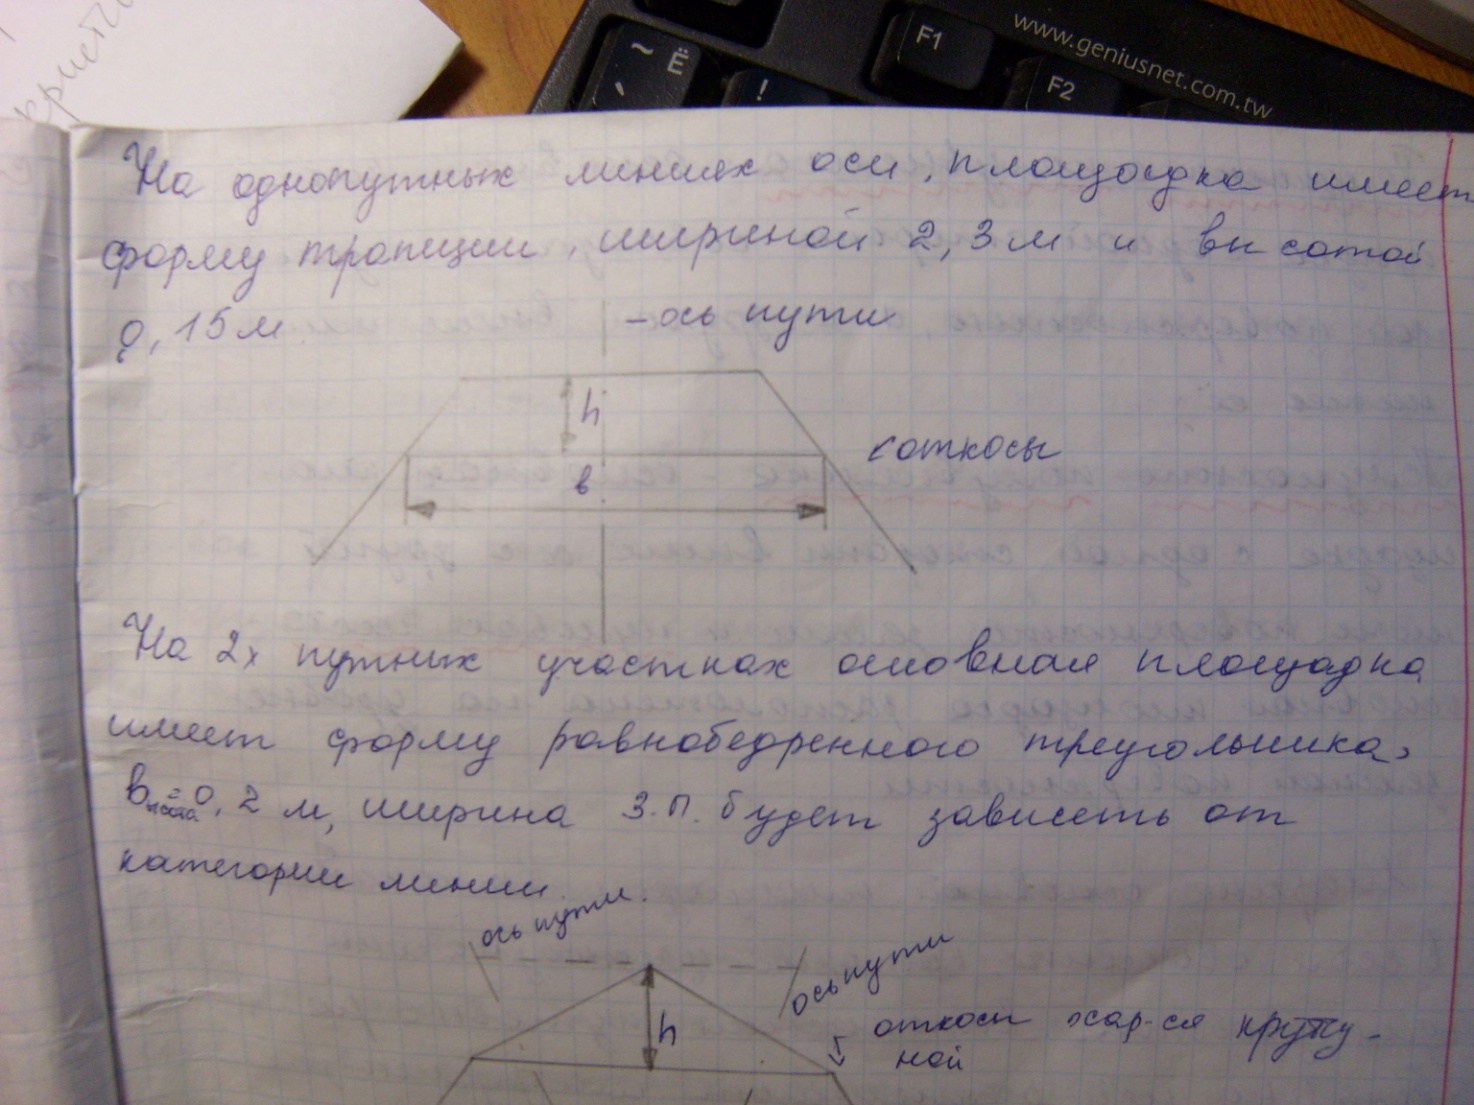 www.geniusnet.com.tw
F1
F2
~
Ё
!
На однопутных линиях осн. площадка имеет
форму трапеции, шириной 2,3 м и высотой
0,15 м
- ось пути
h
в
откосы
На 2х путных участках основная площадка
имеет форму равнобедренного треугольника,
высота = 0,2 м, ширина З.П. будет зависеть от
категории линии.
ось пути
ось пути
h
откосы хар-ся крутиз-
ной